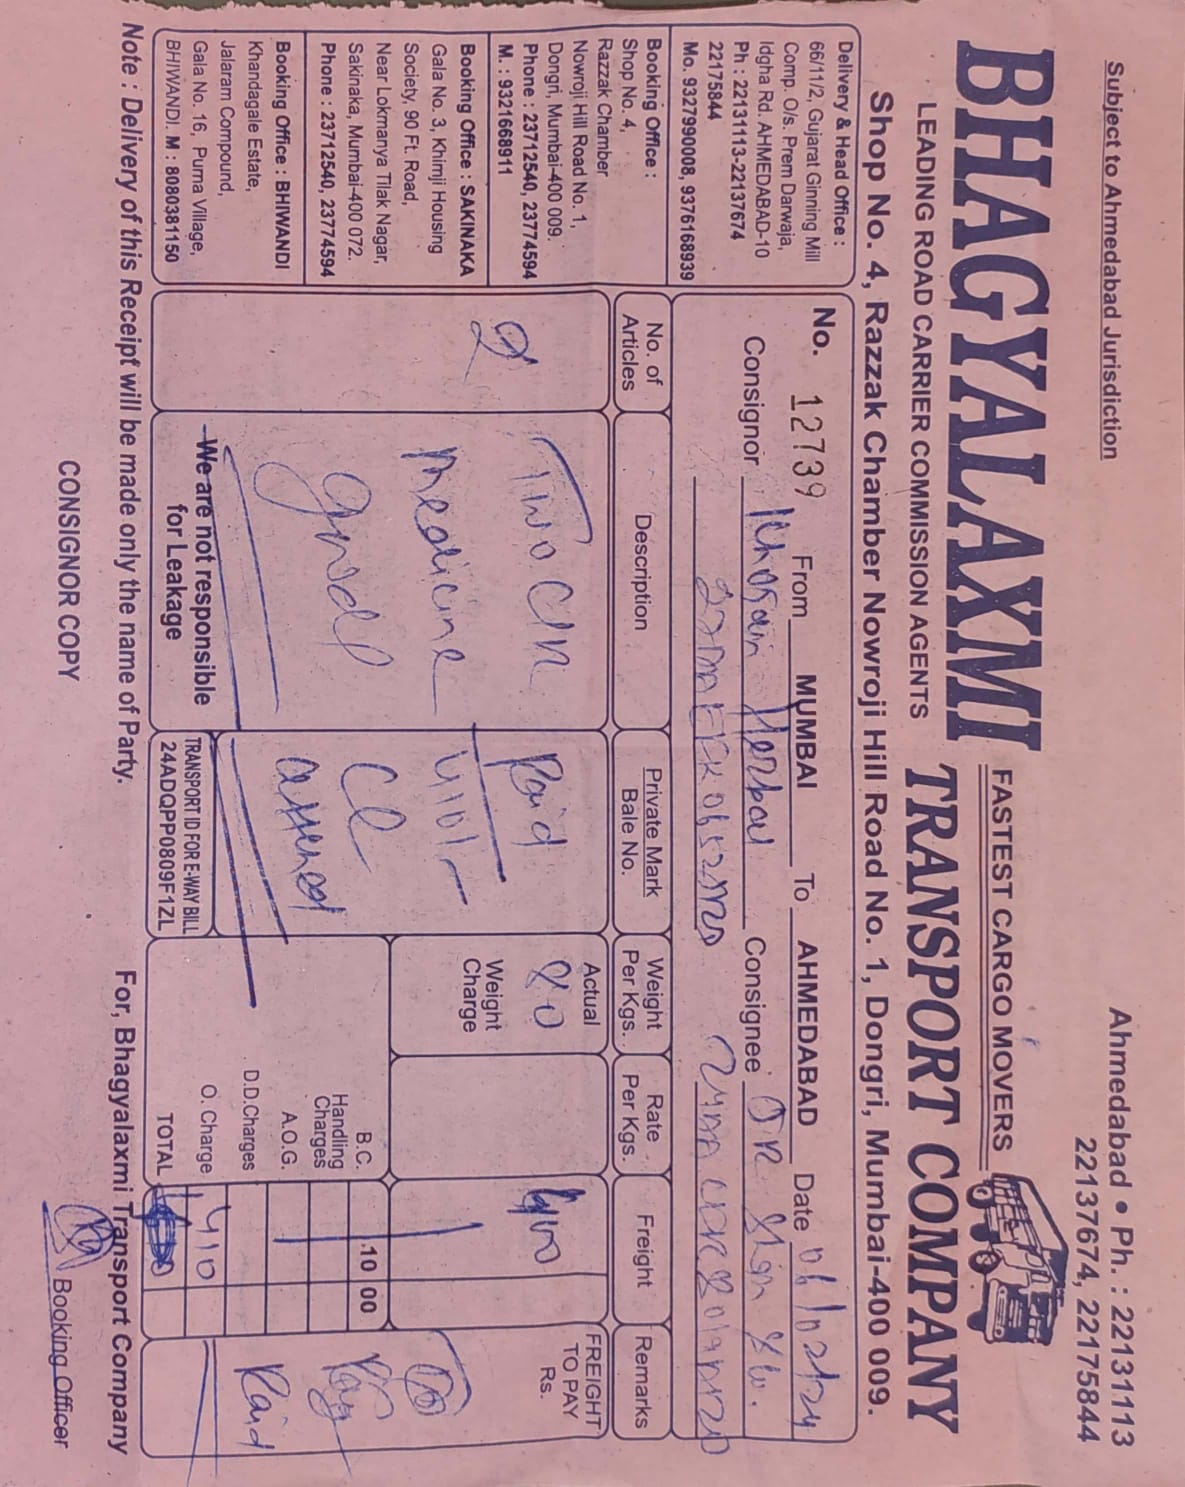 Subject to Ahmedabad Jurisdiction
Ahmedabad • Ph. : 22131113
22137674, 22175844
BHAGYALAXMI
FASTEST CARGO MOVERS
TRANSPORT COMPANY
LEADING ROAD CARRIER COMMISSION AGENTS
Shop No. 4, Razzak Chamber Nowroji Hill Road No. 1, Dongri, Mumbai-400 009.
Delivery & Head Office :
66/11/2, Gujarat Ginning Mill
Comp. O/s. Prem Darwaja,
Idgha Rd. AHMEDABAD-10
Ph : 22131113-22137674
22175844
Mo. 9327990008, 9376168939
Booking Office :
Shop No. 4,
Razzak Chamber
Nowroji Hill Road No. 1,
Dongri, Mumbai-400 009.
Phone : 23712540, 23774594
M. : 9321668911
Booking Office : SAKINAKA
Gala No. 3, Khimji Housing
Society, 90 Ft. Road,
Near Lokmanya Tilak Nagar,
Sakinaka, Mumbai-400 072.
Phone : 23712540, 23774594
Booking Office : BHIWANDI
Khandagale Estate,
Jalaram Compound,
Gala No. 16, Purna Village,
BHIWANDI. M : 8080381150
No. 12739 From MUMBAI To AHMEDABAD Date
Consignor Consignee
No. of Articles
Description
Private Mark Bale No.
Weight Per Kgs.
Rate Per Kgs.
Freight
Remarks
2
Two
Medicine
Paid
410/-
Actual
80
Weight Charge
400
FREIGHT TO PAY Rs.
B.C. 10 00
Handling Charges
A.O.G.
D.D.Charges
O. Charge 410
TOTAL
Paid
We are not responsible
for Leakage
TRANSPORT ID FOR E-WAY BILL
24ADQPP0809F1ZL
Note : Delivery of this Receipt will be made only the name of Party.
For, Bhagyalaxmi Transport Company
CONSIGNOR COPY
Booking Officer